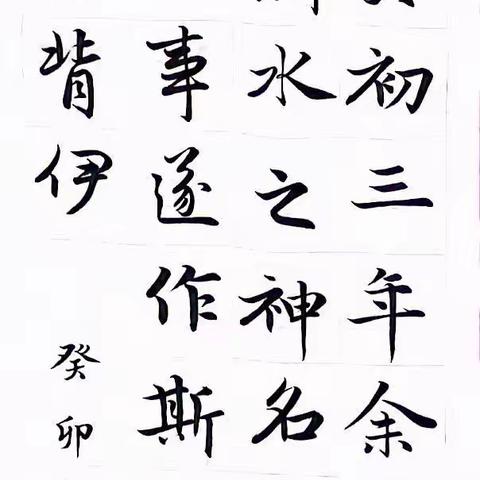 初三年余
水之神名
事遂作斯
背伊
癸卯